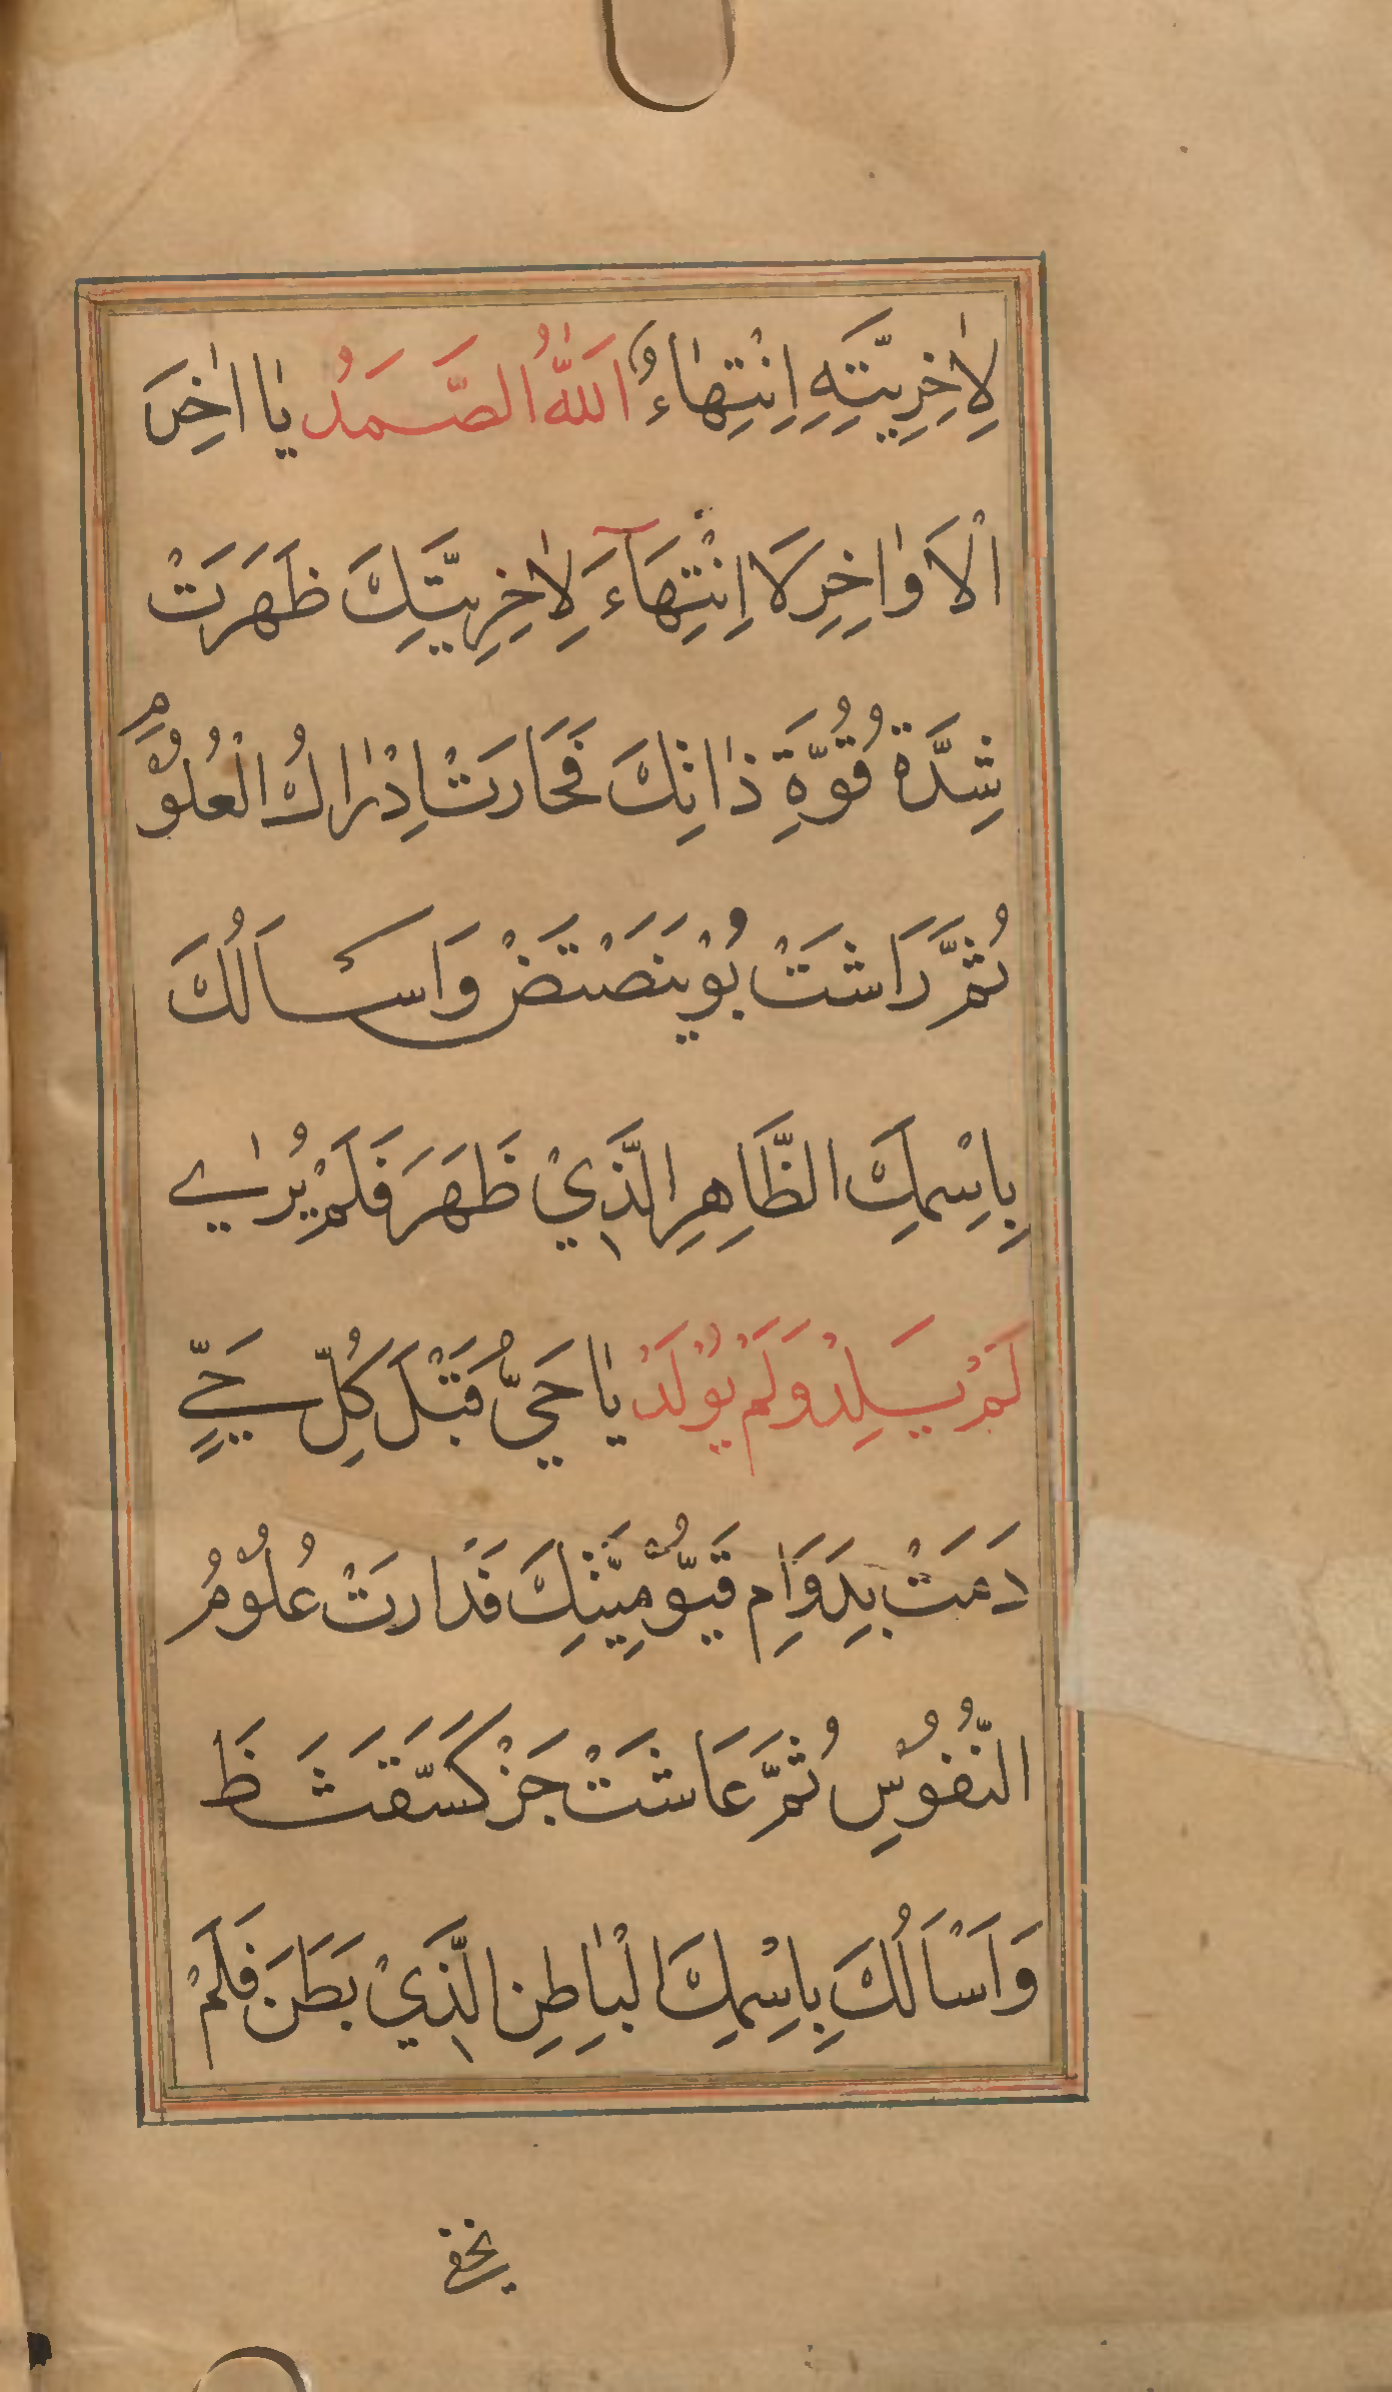 لِاٰخِرِيَّتِهِ اِنْتِهٰاءُ اَللّٰهُ الصَّمَدُ يٰا اٰخِرَ
الْاَوٰاخِرِ لَا اِنْتِهَآءَ لِاٰخِرِيَّتِكَ ظَهَرَتْ
شِدَّةُ قُوَّةِ ذٰانِكَ فَحَارَتْ اِدْرٰاكُ الْعُلُوْمِ
ثُمَّ رَاشَتْ بُوْيَنَصْتَضْ وَاَسْاَلُكَ
بِاِسْمِكَ الظَّاهِرِ الَّذِيْ ظَهَرَ فَلَمْ يُرٰي
لَمْ يَلِدْ وَلَمْ يُوْلَدْ يٰا حَيُّ قَبْلَ كُلِّ حَيٍّ
دَمَتْ بِدَوَاٰمِ قَيُّوْمِيَّتِكَ فَدَارَتْ عُلُوْمُ
النُّفُوْسِ ثُمَّ عَاشَتْ جَزْكَسَّقَشَظَ
وَاَسْاَلُكَ بِاِسْمِكَ الْبٰاطِنِ الَّذِيْ بَطَنَ فَلَمْ
يخف